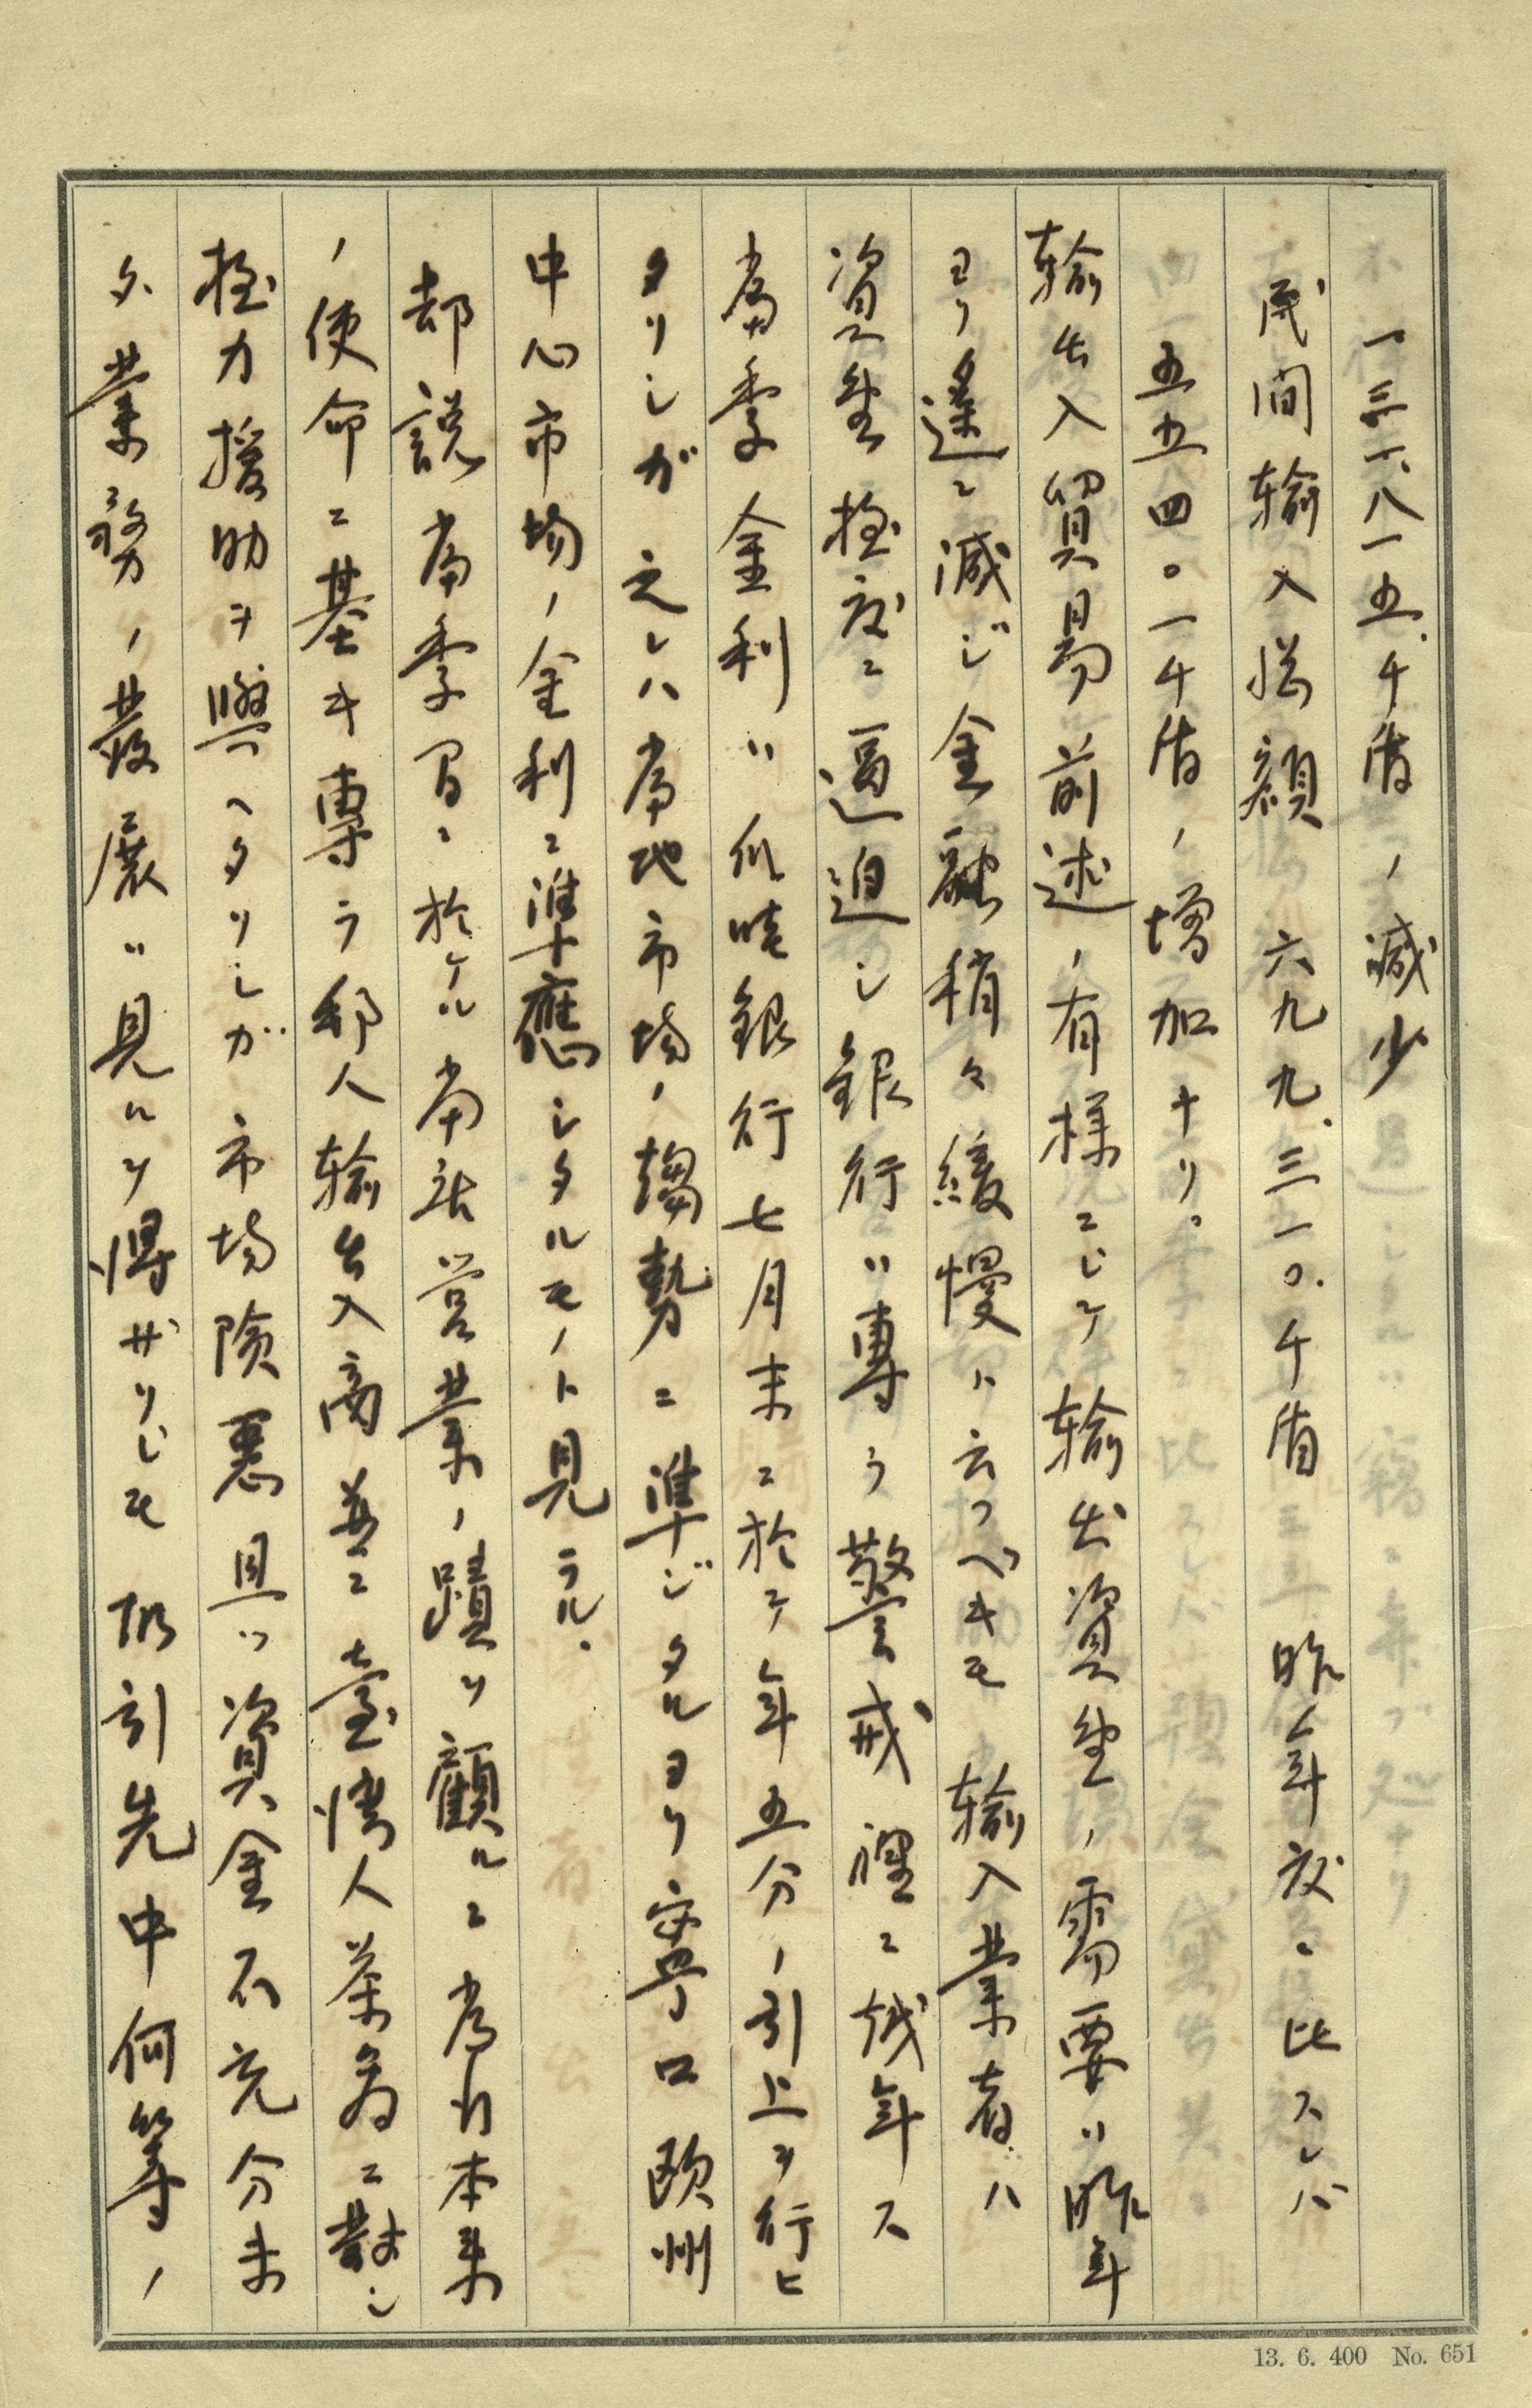 一三一、八一五、千盾ノ減少
民間輸入総額 六九九、三一〇、千盾 昨年度ニ比スレバ
五五四〇一千盾ノ増加ナリ。
輸出入貿易前述ノ有様ニシテ輸出資金ノ需要ハ昨年
ヨリ遙ニ減ジ金融稍々緩慢ト云フベキモ輸入業者ハ
資金極度ニ逼迫シ銀行ハ專ラ警戒裡ニ越年ス
當季金利ハ爪哇銀行七月末ニ於テ年五分ノ引上ヲ行ヒ
タリシガ之レハ當地市場ノ趨勢ニ準ジタルヨリ寧ロ欧州
中心市場ノ金利ニ準應シタルモノト見ラル。
却説當季間ニ於ケル當店営業ノ蹟ヲ顧ルニ為替本来
ノ使命ニ基キ専ラ邦人輸出入商並ニ臺湾人茶商ニ對シ
極力援助ヲ與ヘタリシガ市場険悪且ツ資金不充分未
タ業務ノ發展ハ見ルヲ得ザリシモ取引先中何等ノ